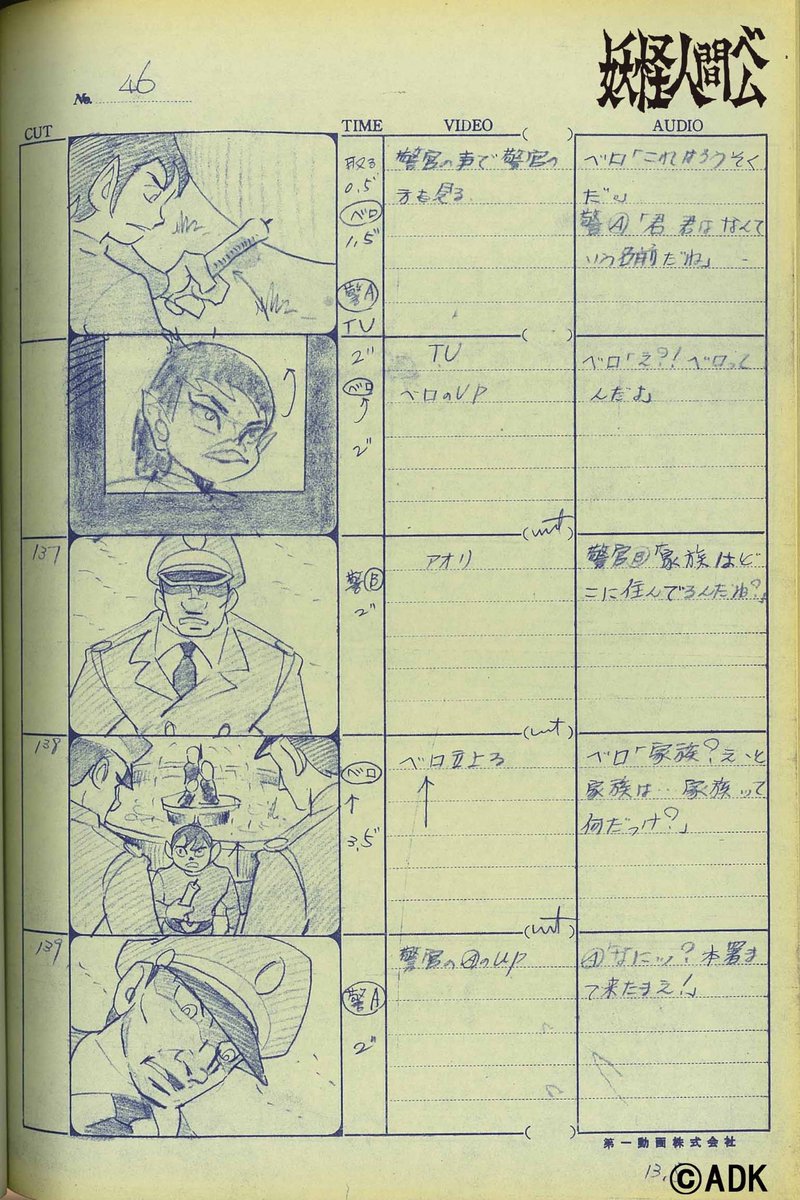 妖怪人間ベム
No. 46
CUT
TIME
VIDEO
AUDIO
取る
0.5"
ベロ
1.5"
警A
TU
警官の声で警官の
方を見る
ベロ「これはろうそく
だ」
警A「君 君はなんて
いう名前だね」
2"
ベロ
2"
TU
ベロのUP
ベロ「え?! ベロって
んだよ」
137
警B
2"
アオリ
警官B「家族はど
こに住んでるんだね?」
138
ベロ
3.5"
ベロ立上る
ベロ「家族? えーと
家族は‥家族って
何だっけ?」
139
警A
2"
警官のAのUP
A「なにッ? 本署ま
で来たまえ!」
第一動画株式会社
13.
©ADK